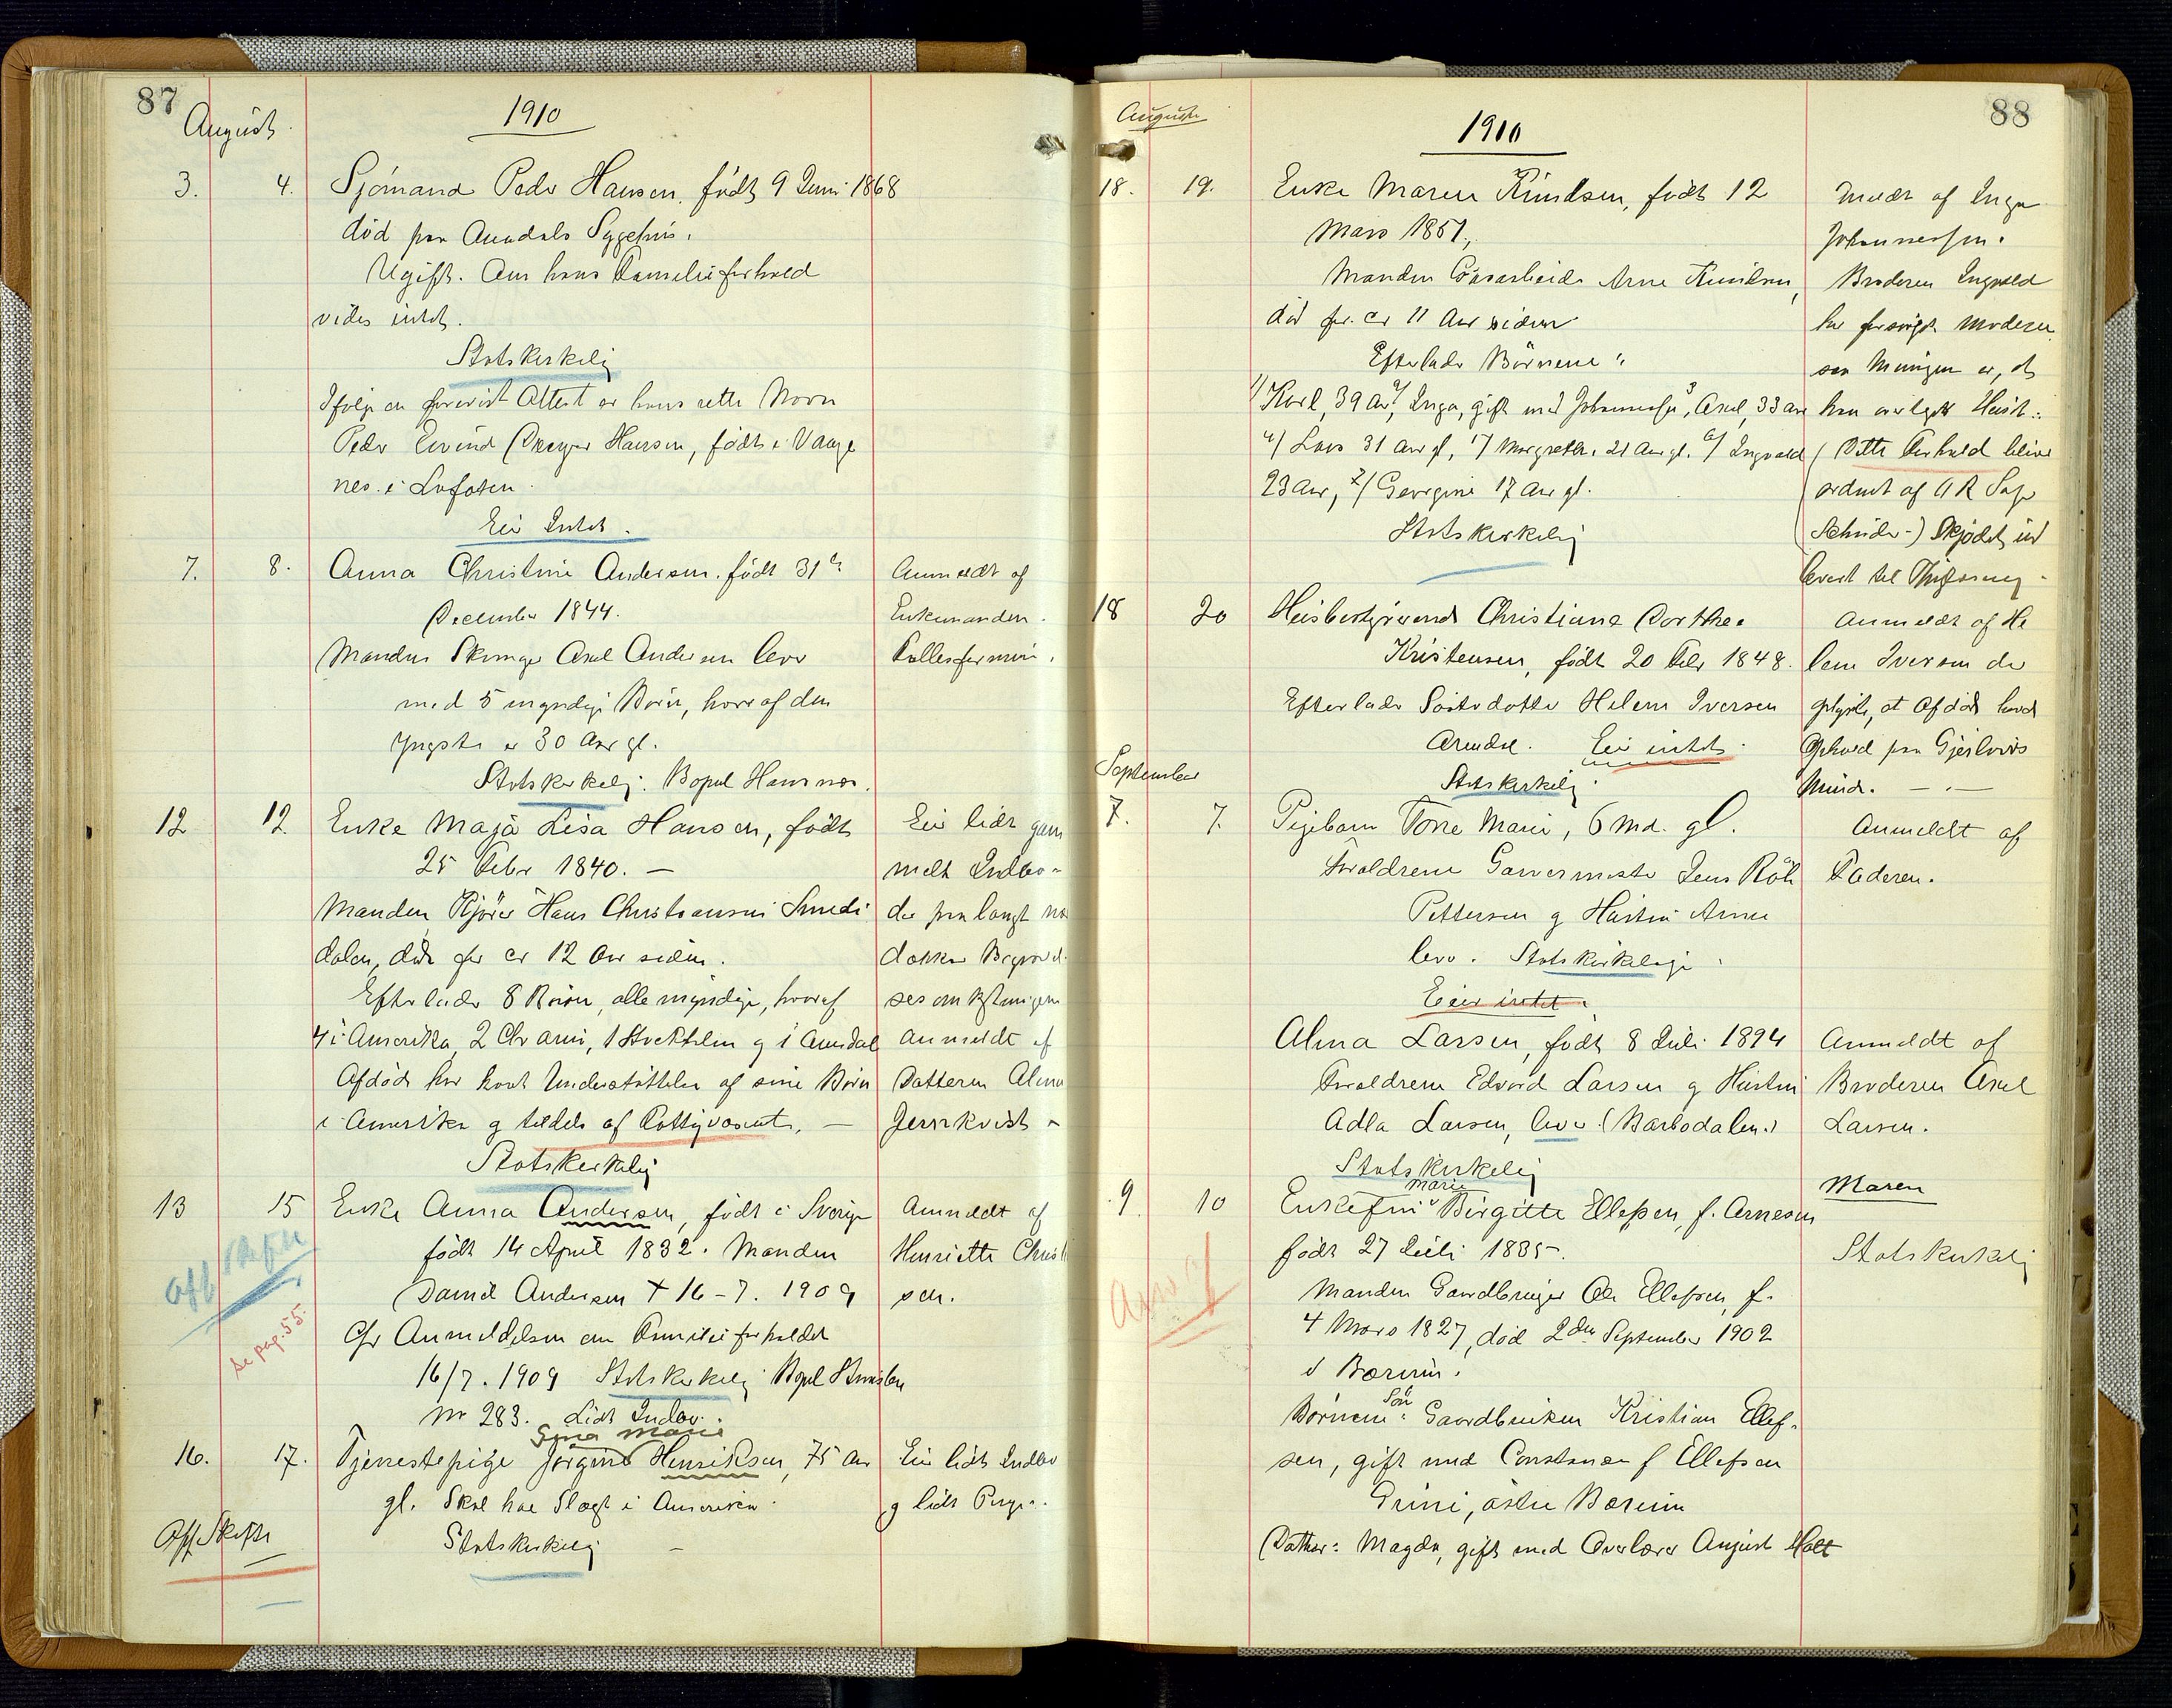 87
August
1910
3. 4. Sjömand Peder Hansen, födt 9 Juni 1868
död paa Arendals Sygehus.
Ugift. Om hans Familieforhold
vides intet.
Statskirkelig
Ifölge en forevist Attest er hans rette Navn
Peder Eivind Hansen, födt i Vaage
nes i Lofoten
Eier Intet.
7. 8. Anna Christine Andersen, födt 31te
December 1844.
Manden Axel Andersen lever
med 5 myndige Börn, hvoraf den
yngste er 30 Aar gl.
Statskirkelig. Bopæl
Anmeldt af
Enkemanden.
12 12 Enke Maja Lisa Hansen, födt
25 Febr 1840. —
Manden Hans
dalen, död for ca 12 Aar siden.
Efterlader 8 Börn, alle myndige, hvoraf
4 i Amerika, 2 Chrania, 1 Stockholm og 1 Arendal
Afdöde har havt Understöttelse af sine Börn
i Amerika og tildels af Fattigvæsenet. —
Statskirkelig
Eier lidt gam
melt Indbo
der paa langt nær
dækker Begravel
ses omkostningerne
Anmeldt af
Datteren Alma
Jernkvist
13 15 Enke Anna Andersen, födt i Sverige
födt 14 April 1832. Manden
Daniel Andersen † 16-7. 1909
Cfr Anmeldelsen om Familieforholdet
16/7. 1909 Statskirkelig Bopæl
Nr 283. Lidt Indbo.
Anmeldt af
Henriette
sen.
Se pag. 55.
Gina Marie
16. 17. Tjenestepige Jörgine Henriksen, 75 Aar
gl. Skal have Slægt i Amerika.
Statskirkelig —
Eier lidt Indbo
og lidt Penge.
Off Skifte
88
August
1910
18. 19. Enke Maren Knudsen, födt 12
Mars 1851.
Manden Arne Knudsen,
död for ca 11 Aar siden
Efterlader Börnene:
1/ Karl, 39 Aar, 2/ Inga, gift med Johannesen, 3 Axel, 33 Aar
4/ Lars 31 Aar gl, 5/ Margrethe 21 Aar gl. 6/ Ingvald
23 Aar, 7/ Georgine 17 Aar gl.
Statskirkelig
Anmeldt af Inga
Johannessen.
Broderen Ingvald
har forsörget Moderen
saa Meningen er, at
han overtager Huset.
(Dette Forhold bliver
ordnet af O R Sag
förer Schröder) Skjödet ind
leveret til Thinglæsning.
18 20 Husbestyrerende Christiane Dorthea
Kristensen, födt 20 Febr 1848.
Efterlader Södsterdatter Helene Iversen
Arendal. Eier intet.
Statskirkelig
Anmeldt af He
lene Iversen der
oplyste, at Afdöde havde
Ophold paa
Minde. —
September
7. 7. Pigebarn Tove Marie, 6 Md. gl.
Forældrene Garvermester Jens
Pettersen og Hustru Anna
lever. Statskirkelige
Eier intet.
Anmeldt af
Faderen.
Alma Larsen, födt 8 Juli 1894
Forældrene Edvard Larsen og Hustru
Adla Larsen, lever. (Barbodalen)
Statskirkelig
Anmeldt af
Broderen Axel
Larsen.
Marie Maren
9. 10 Enkefru Birgitte Ellefsen, f. Arnesen
födt 27 Juli 1835.
Manden Gaardbruger Ole Ellefsen, f.
4 Mars 1827, död 2den September 1902
i Bærum.
Börnene: Sön Gaardbruker Kristian Ellef-
sen, gift med Constance f Ellefsen
Grini, östre Bærum
Datter: Magda, gift med Overlærer August Holt
Statskirkelig